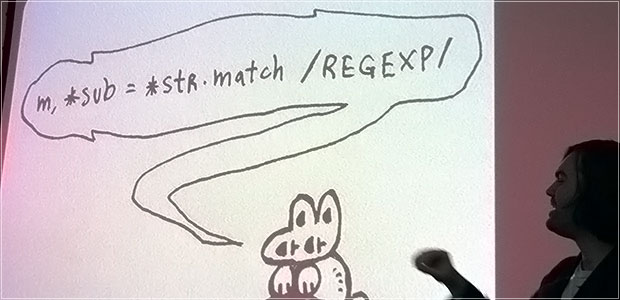 m, *sub = *str.match /REGEXP/